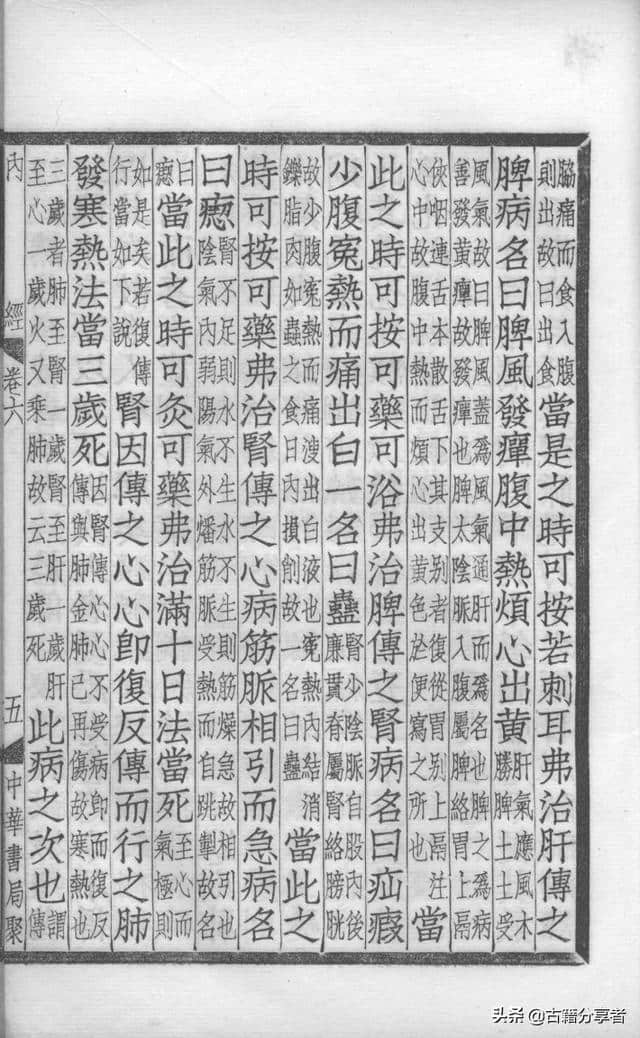 脇痛而食入腹
則出故曰出食
當是之時可按若刺耳弗治肝傳之
脾病名曰脾風發癉腹中熱煩心出黃
肝氣應風木
勝脾土土受
風氣故曰脾風蓋爲風氣通肝而爲名也脾之爲病
善發黃癉故發癉也脾太陰脈入腹屬脾絡胃上鬲
俠咽連舌本散舌下其支別者復從胃別上鬲注
心中故腹中熱而煩心出黃色於便寫之所也
當
此之時可按可藥可浴弗治脾傳之腎病名曰疝瘕
少腹寃熱而痛出白一名曰蠱
腎少陰脈自股內後
廉貫脊屬腎絡膀胱
故少腹寃熱而痛溲出白液也寃熱內結消
鑠脂肉如蟲之食日內損削故一名曰蠱
當此之
時可按可藥弗治腎傳之心病筋脈相引而急病名
曰瘛
腎不足則水不生水不生則筋燥急故相引也
陰氣內弱陽氣外燔筋脈受熱而自跳掣故名
曰
瘛
當此之時可灸可藥弗治滿十日法當死
至心而
氣極則
如是矣若復傳
行當如下說
腎因傳之心心卽復反傳而行之肺
發寒熱法當三歲死
因腎傳心心不受病卽而復反
傳與肺金肺已再傷故寒熱也
三歲者肺至腎一歲腎至肝一歲肝
至心一歲火又乘肺故云三歲死
此病之次也
謂
傳
內經 卷六 五 中華書局聚
头条 @古籍分享者